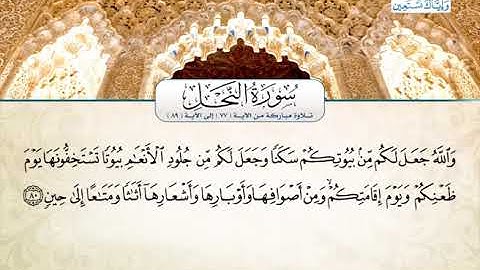 وَإِيَّاكَ نَسْتَعِينُ
سُورَةُ النَّحْلِ
تلاوة مباركة من الآية (٧٧) إلى الآية (٨٩)
وَٱللَّهُ جَعَلَ لَكُم مِّنۢ بُيُوتِكُمْ سَكَنًا وَجَعَلَ لَكُم مِّن جُلُودِ ٱلْأَنْعَٰمِ بُيُوتًا تَسْتَخِفُّونَهَا يَوْمَ
ظَعْنِكُمْ وَيَوْمَ إِقَامَتِكُمْ ۙ وَمِنْ أَصْوَافِهَا وَأَوْبَارِهَا وَأَشْعَارِهَآ أَثَٰثًا وَمَتَٰعًا إِلَىٰ حِينٍ ٨٠